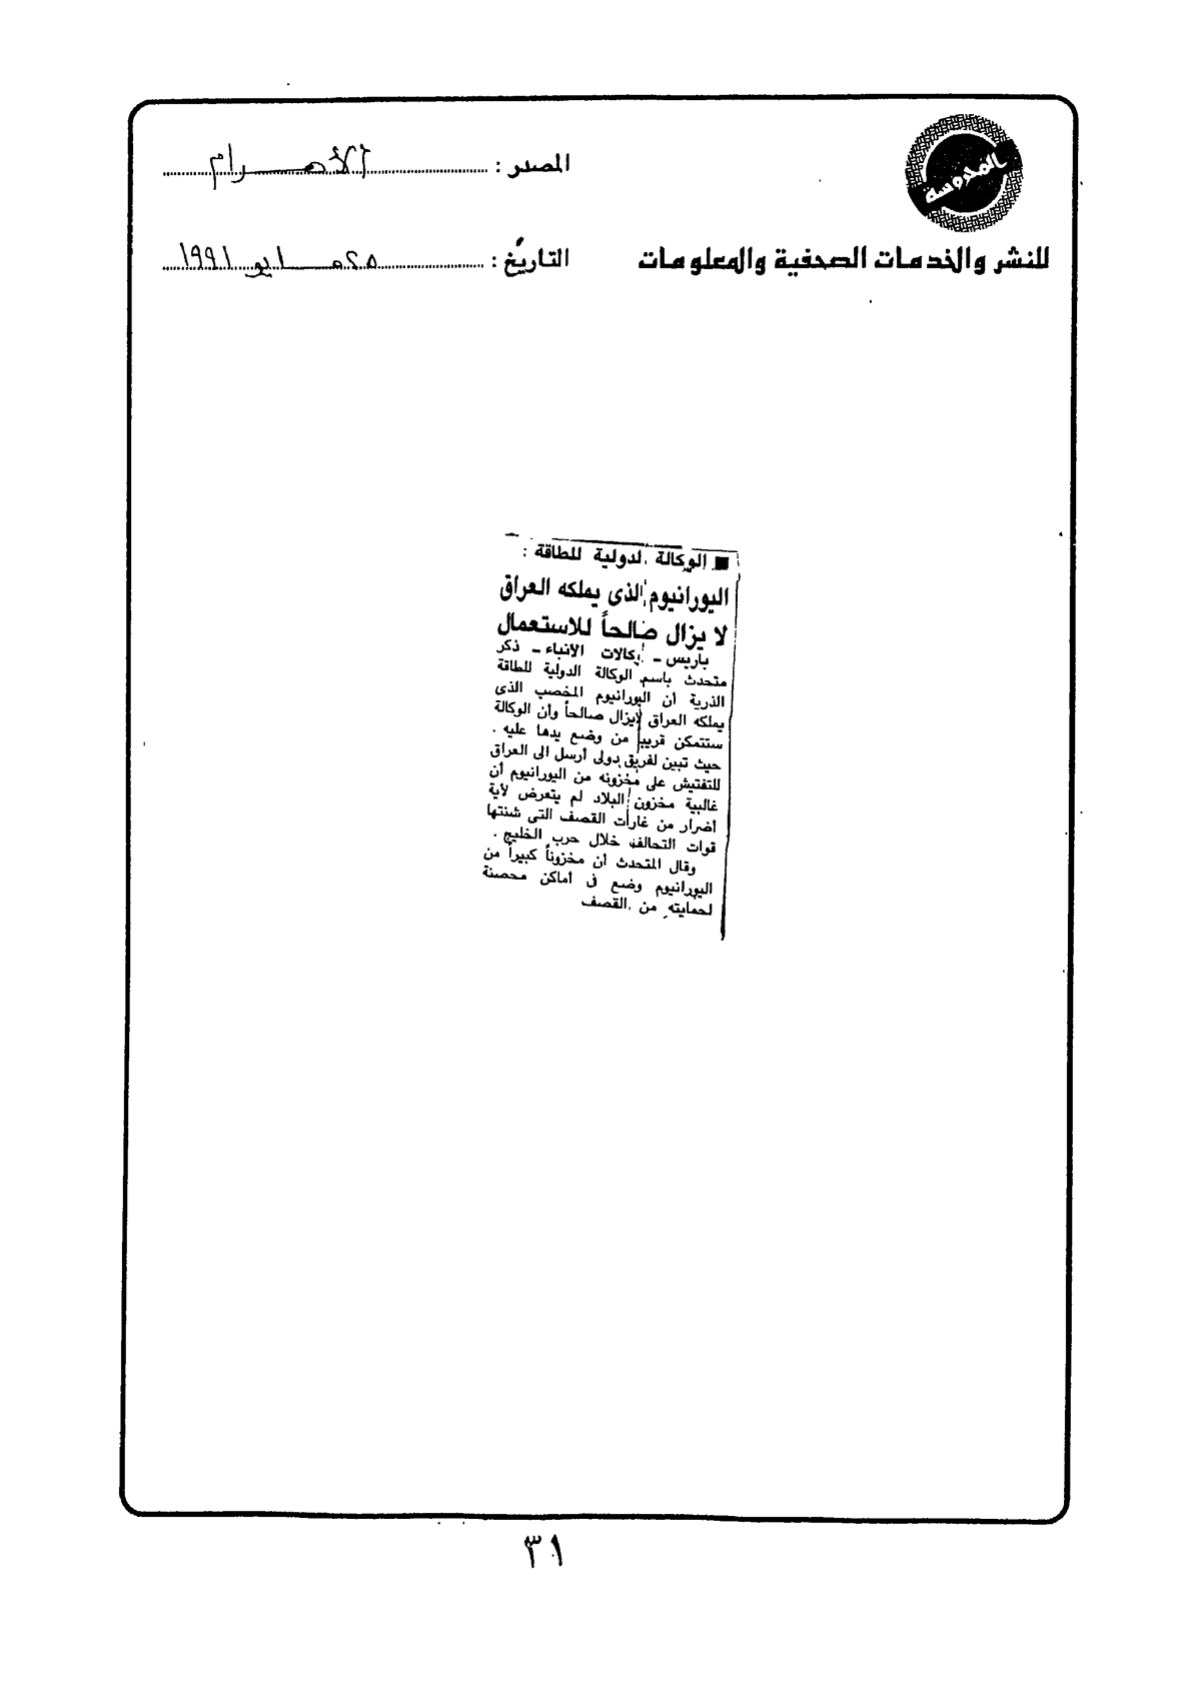 المحروسة
المصدر : الأهرام
للنشر والخدمات الصحفية والمعلومات
التاريخ : ٢٥ مايو ١٩٩١
■ الوكالة الدولية للطاقة :
اليورانيوم الذى يملكه العراق
لا يزال صالحاً للاستعمال
باريس - وكالات الأنباء - ذكر
متحدث باسم الوكالة الدولية للطاقة
الذرية أن اليورانيوم المخصب الذى
يملكه العراق لايزال صالحاً وأن الوكالة
ستتمكن قريباً من وضع يدها عليه .
حيث تبين لفريق دولى أرسل الى العراق
للتفتيش على مخزونه من اليورانيوم أن
غالبية مخزون البلاد لم يتعرض لأية
أضرار من غارات القصف التى شنتها
قوات التحالف خلال حرب الخليج .
وقال المتحدث أن مخزوناً كبيراً من
اليورانيوم وضع فى أماكن محصنة
لحمايته من القصف
٣١